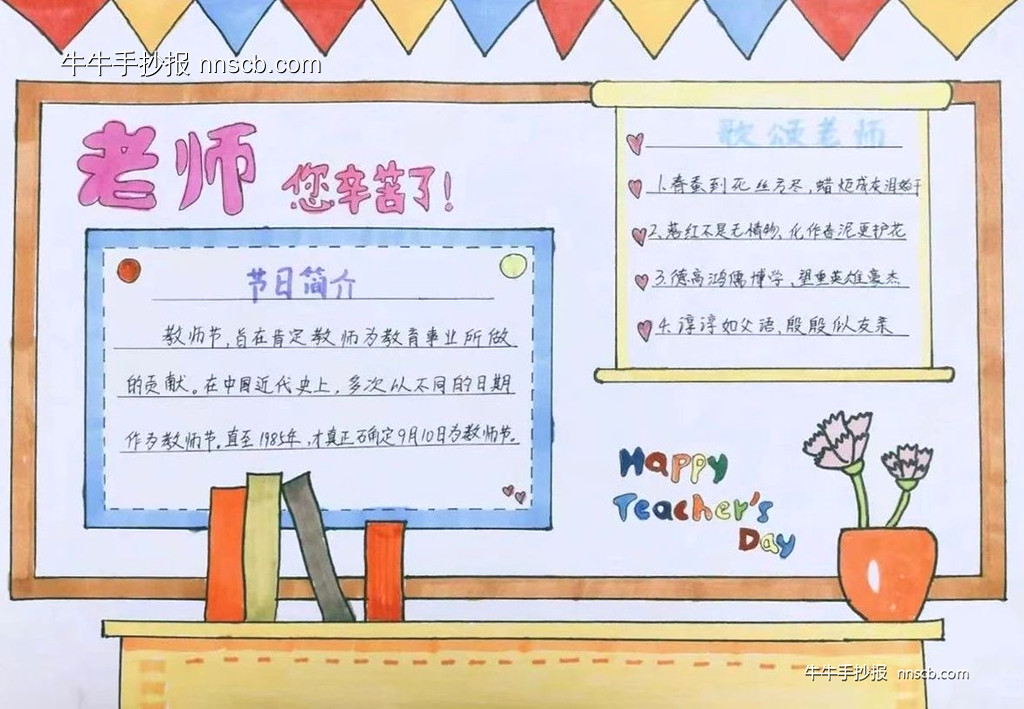 牛牛手抄报 nnscb.com
老师 您辛苦了!
节日简介
教师节,旨在肯定教师为教育事业所做
的贡献。在中国近代史上,多次以不同的日期
作为教师节。直至1985年,才真正确定9月10日为教师节。
歌颂老师
1.春蚕到死丝方尽,蜡炬成灰泪始干
2.落红不是无情物、化作春泥更护花
3.德高鸿儒博学,望重英雄豪杰
4.谆谆如父语,殷殷似友亲
Happy
Teacher's
Day
牛牛手抄报 nnscb.com